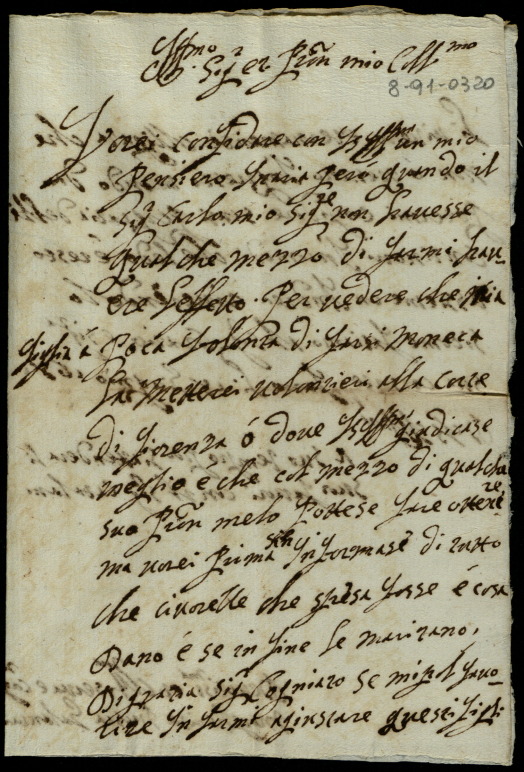 Illmo Sigr et Prōn mio Collmo
8-91-0320
Vorei confidare con VS Illma un mio
Pensiero In caia però quando il
Sigr Carlo mio Sigre non havesse
qualche mezzo di farmi hav-
ere l'effetto. Per vedere che mia
figlia á Poca Volontà di farsi moneca
La Metterei volontieri alla corte
di fiorenza ó dove VS Illma giudicase
meglio é che col mezzo di qualche
suo Prōn melo Potese fare ottenere
ma vorei Prima Informase di tutto
che ci vorebbe che spesa fosse é cosa
Dano é se in fine le maritano,
Di gratia Sigr Cogniato se mi pol favo-
rire In farmi agiustare questi figli